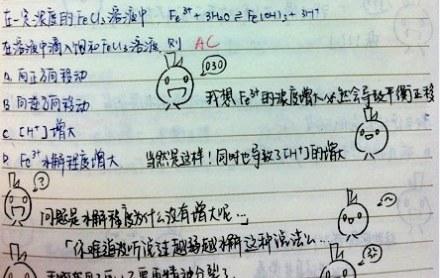 在一定浓度的FeCl₃溶液中 Fe³⁺+3H₂O⇌Fe(OH)₃+3H⁺
在溶液中滴入饱和FeCl₃溶液 则 AC
A. 向正方向移动
(030)
B 向逆方向移动
我想Fe³⁺的浓度增大必然会导致平衡正移
C [H⁺]增大
D. Fe³⁺水解程度增大
当然是这样!同时也导致了[H⁺]的增大
?
问题是水解程度为什么没有增大呢…
「你难道没听说过越稀越水解这种说法么…